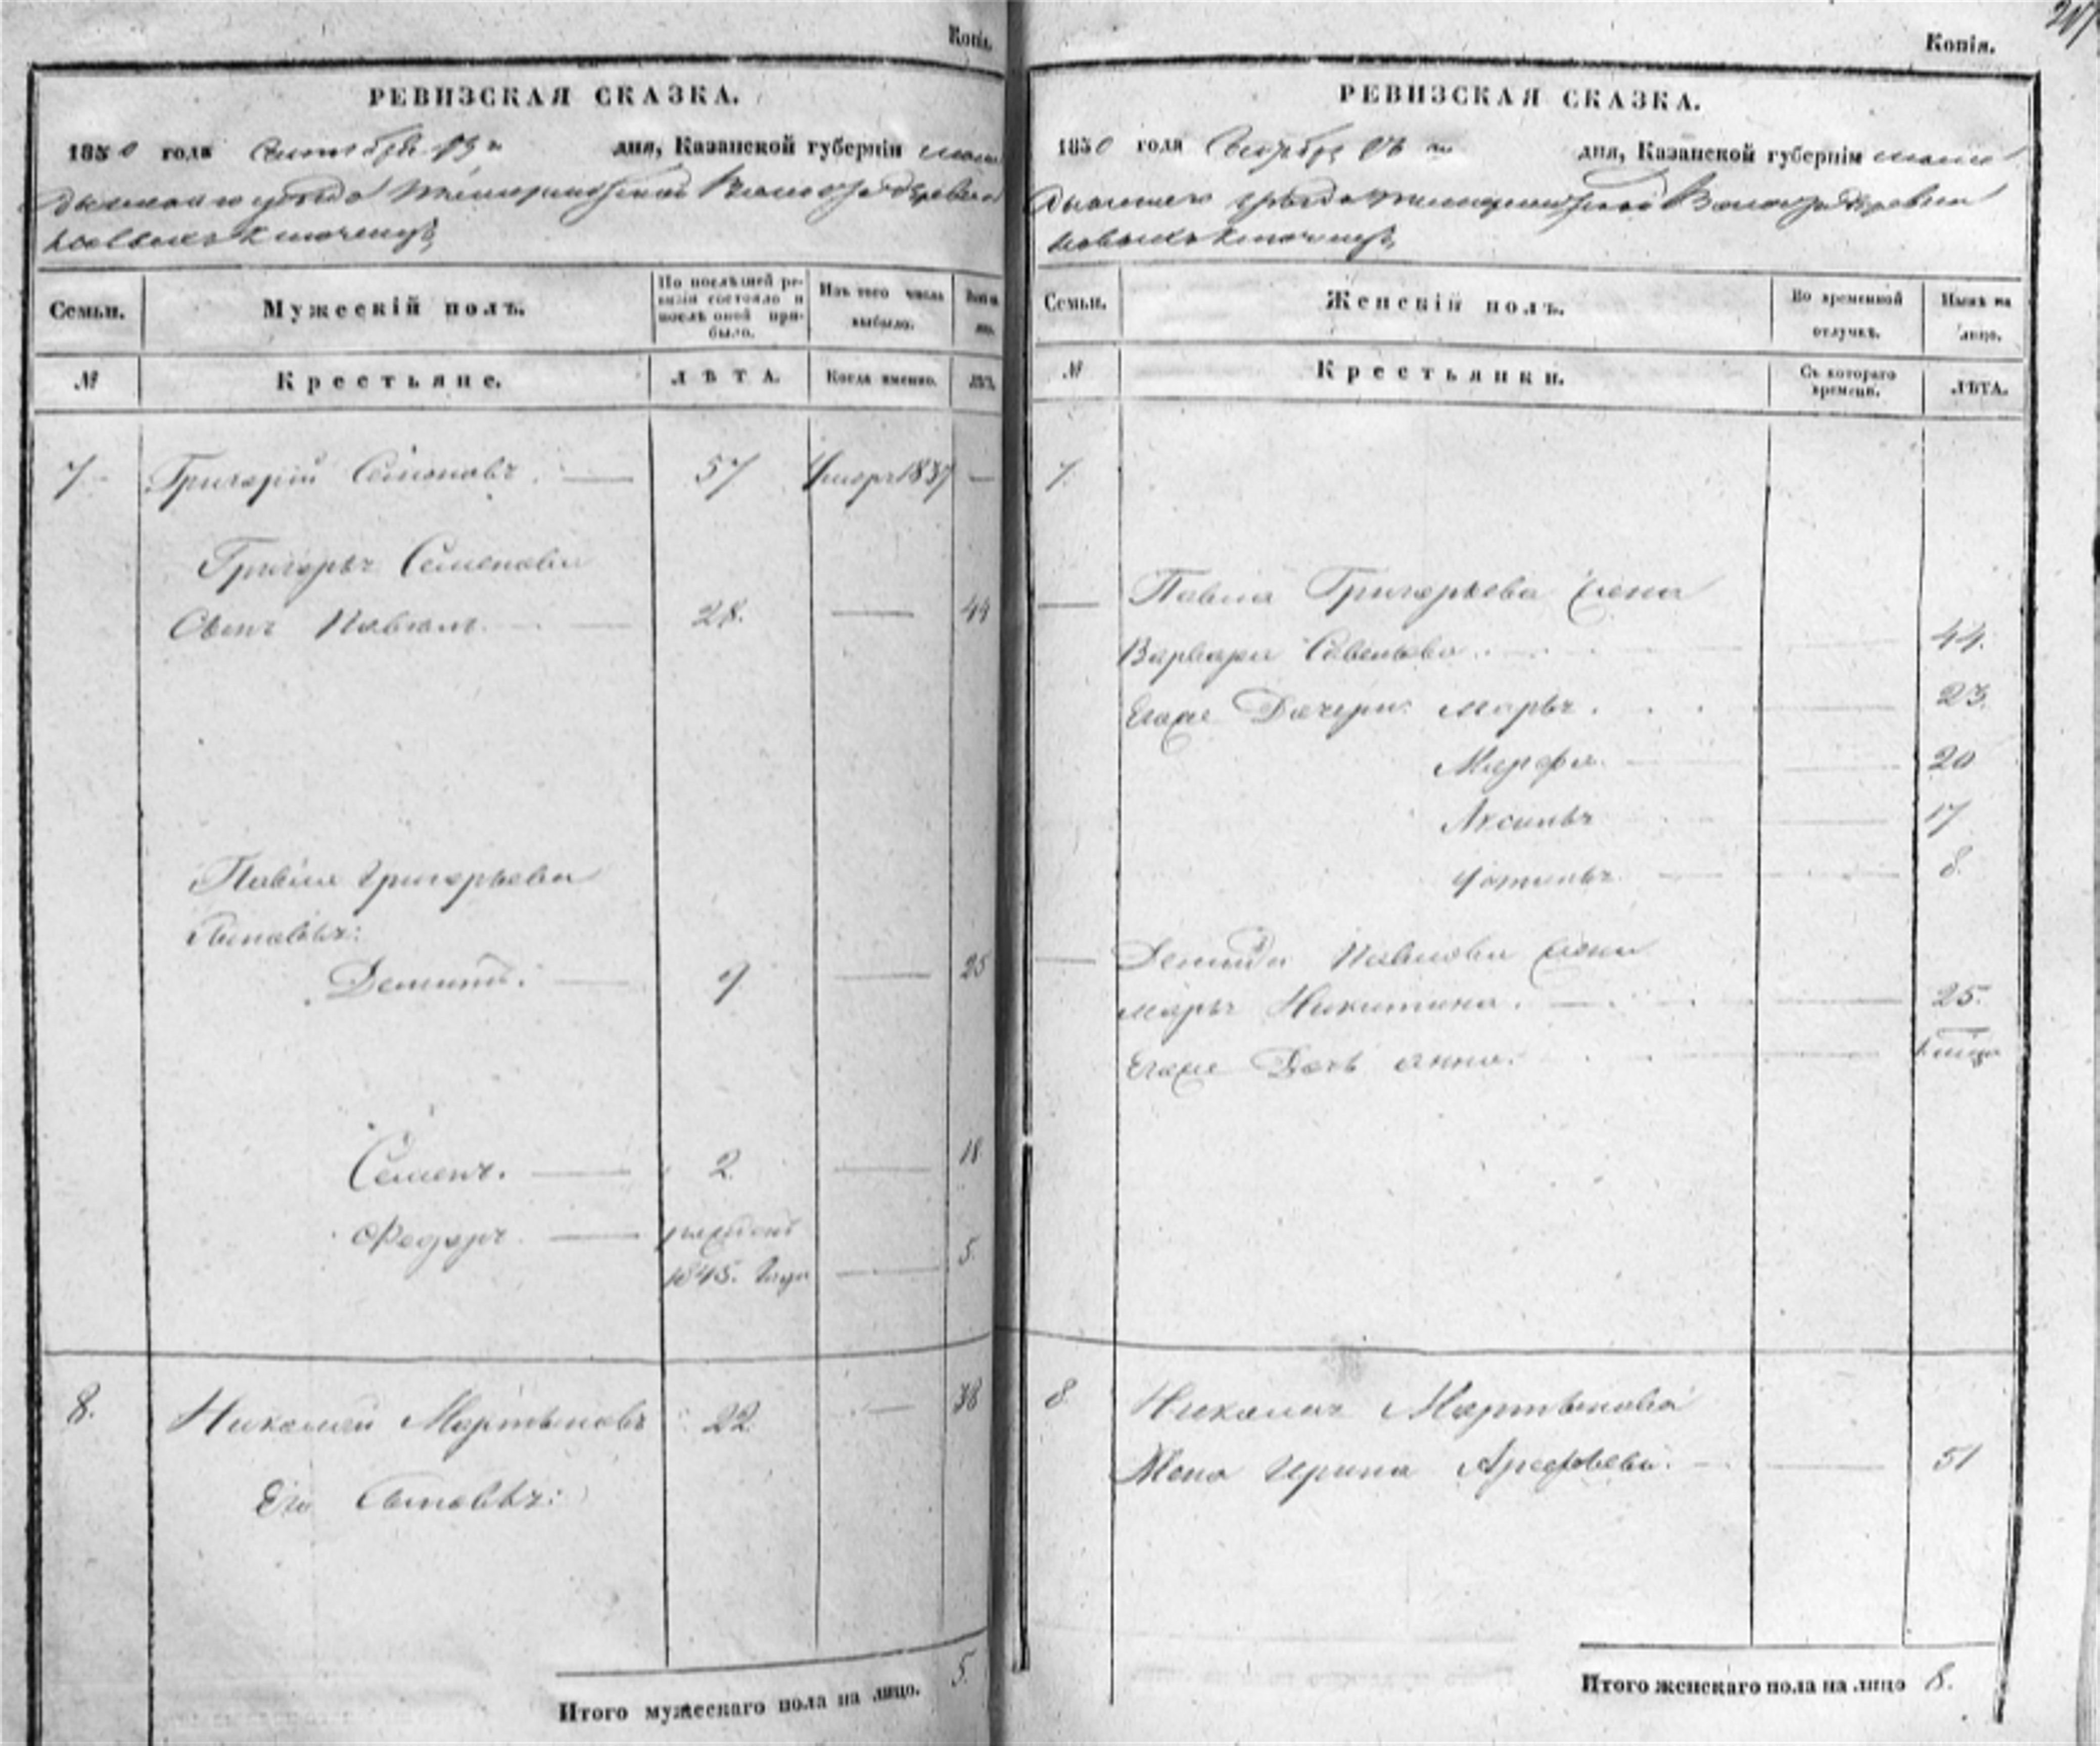 Копія.
РЕВИЗСКАЯ СКАЗКА.
1850 года Сентября дня, Казанской губерніи
уѣзда Волости деревни
Семьи. Мужескій полъ. По послѣдней ревизіи состояло и послѣ оной прибыло. Изъ того числа выбыло.
№ Крестьяне. ЛѢТА. Когда именно. ЛѢТ.
7 Григорій Семоновъ. 57 Умеръ 1837 —
Григорья Семенова
Сынъ Павелъ. 28. — 44
Павла Григорьева
Сыновья:
Демидъ. 9 — 25
Семенъ. 2. — 18
Федоръ. рожденъ
1845. Года — 5.
8. Николай Мартыновъ 22. — 38
Его Сыновья:
Итого мужескаго пола на лицо. 5.
Копія.
РЕВИЗСКАЯ СКАЗКА.
1850 года дня, Казанской губерніи
уѣзда Волости деревни
Семьи. Женскій полъ. Во временной отлучкѣ. Нынѣ на лицо.
№ Крестьянки. Съ котораго времени. ЛѢТА.
7.
— Павла Григорьева Жена
Варвара Савельева. — 44.
Егоже Дочери: Марья. — 23.
Марфа. — 20
Аксинья — 17
Фотинья. — 8.
— Демида Павлова Жена
Марья Никитина. — 25.
Егоже Дочь Анна. —
8. Николая Мартынова
Жена Ирина Арефьева. — 51
Итого женскаго пола на лицо 8.